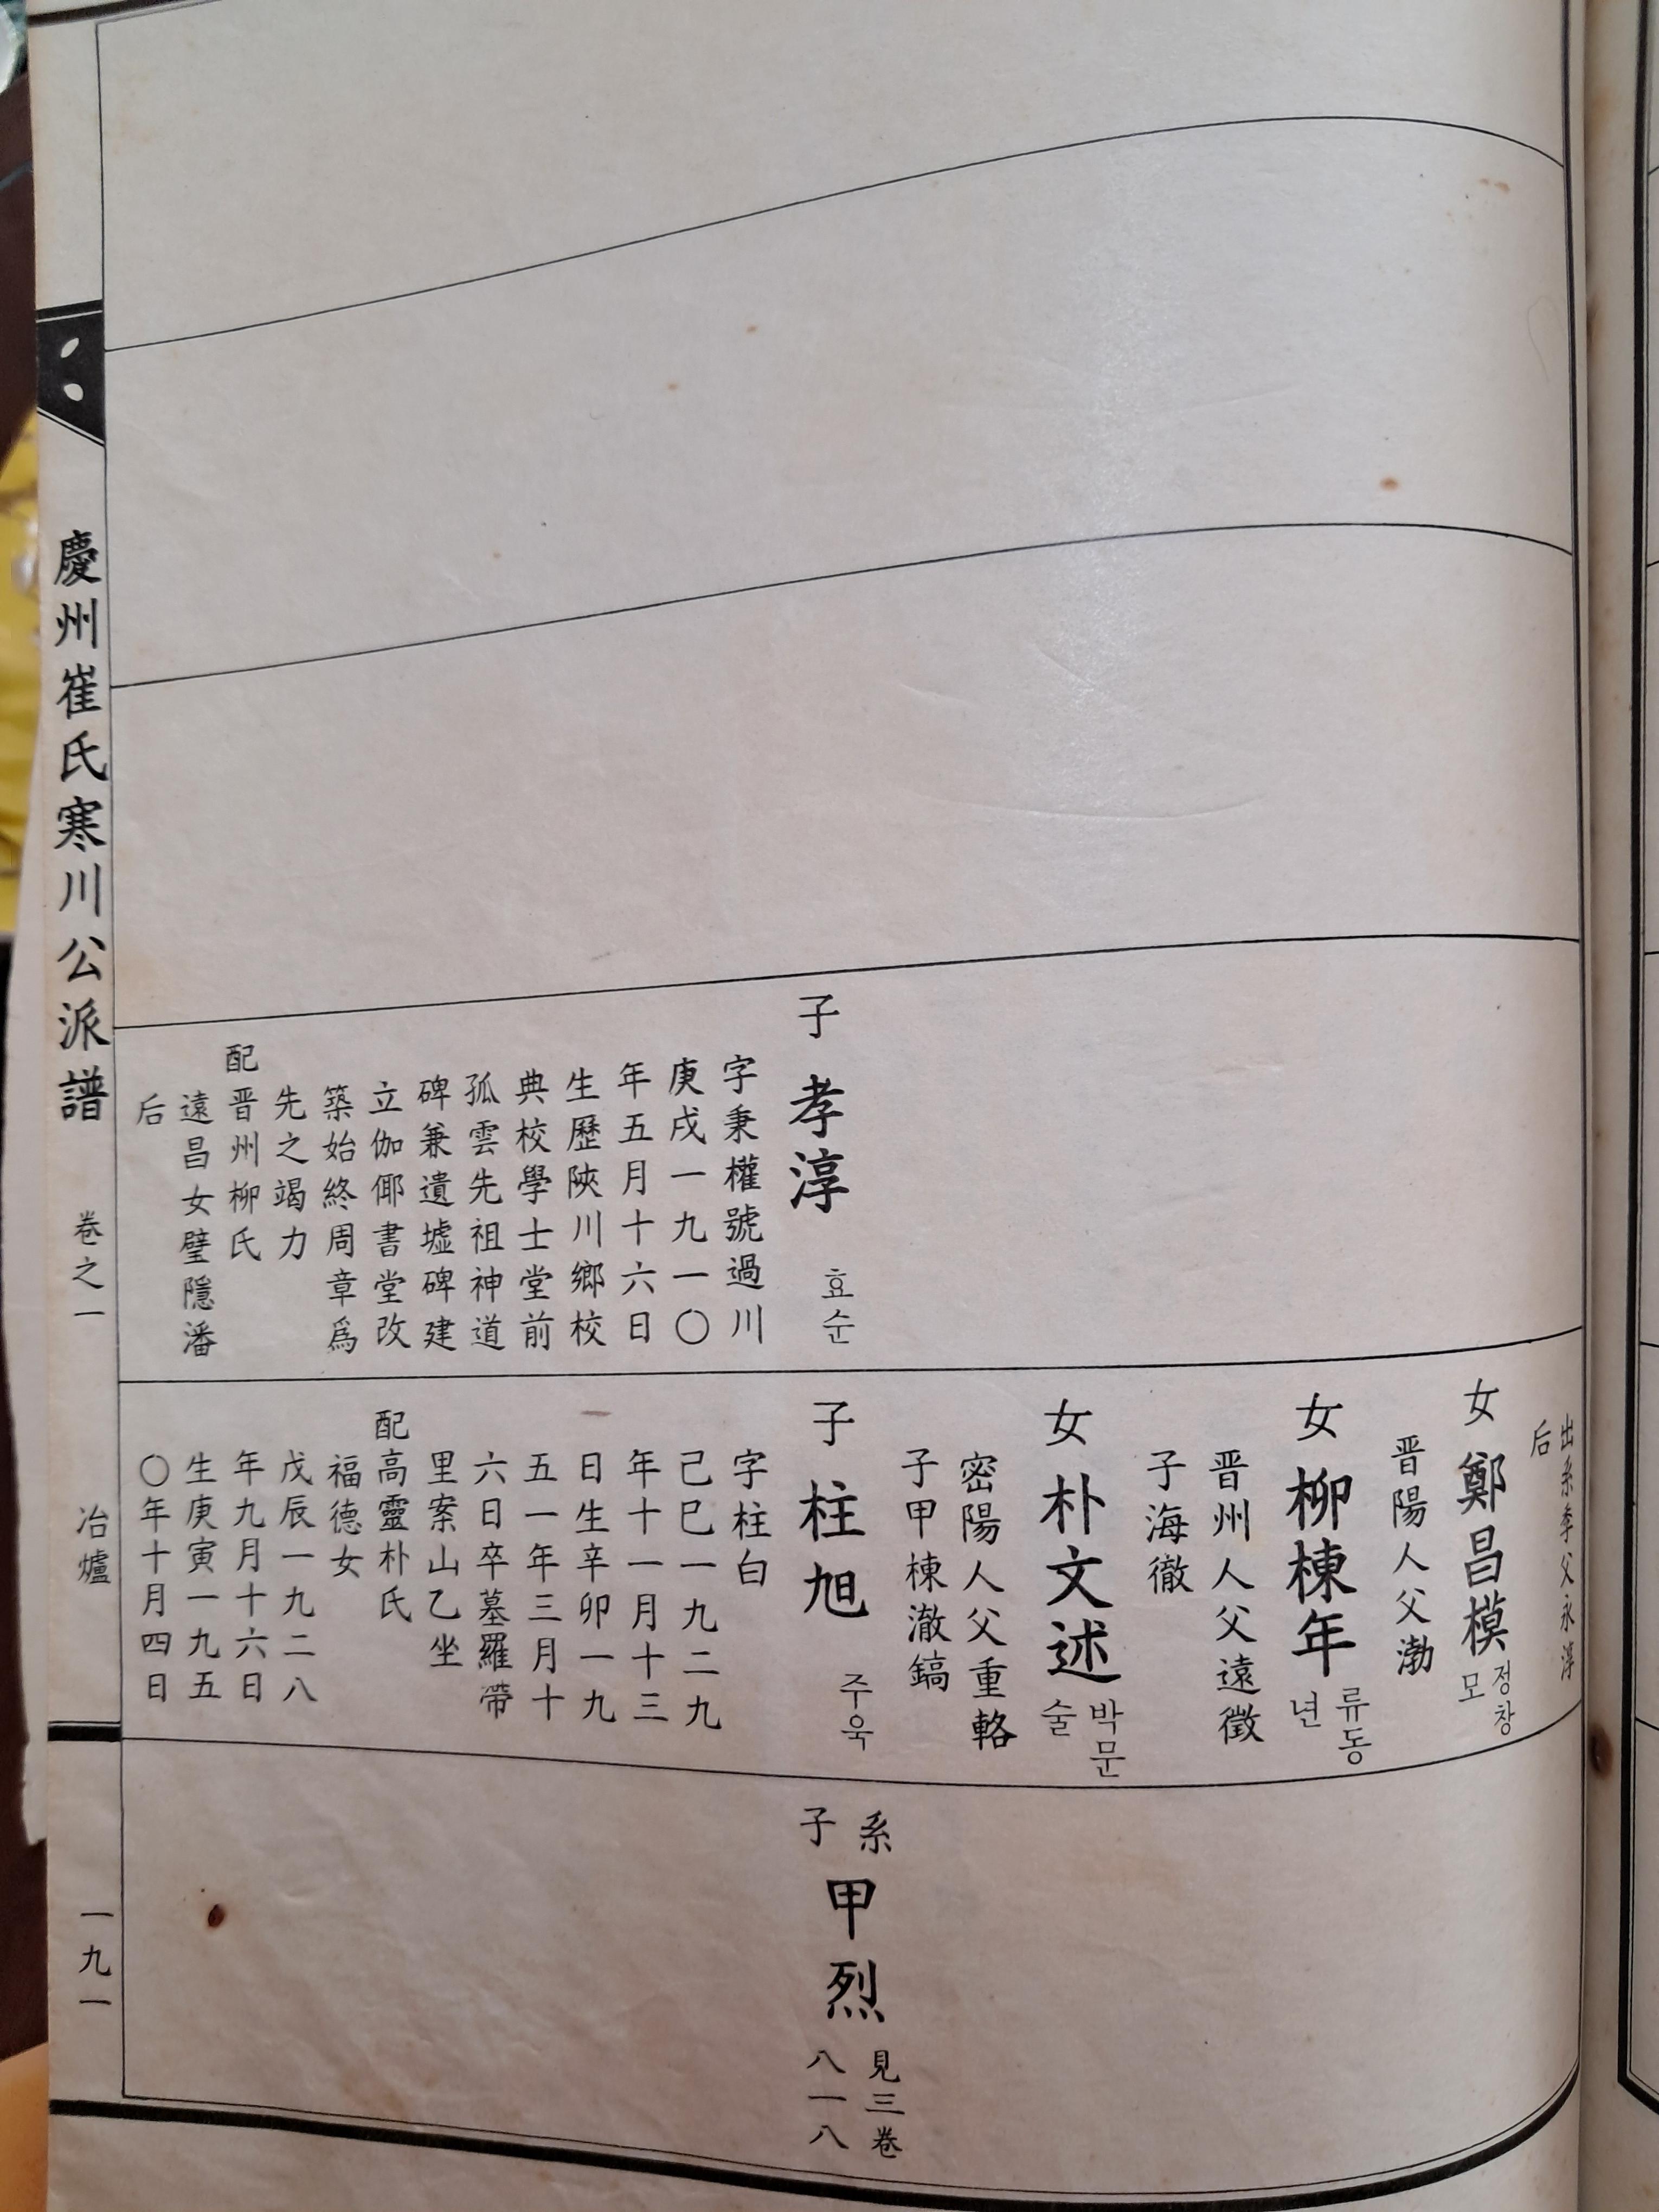 出系季父永淳
后
女 鄭昌模 정창
모
晋陽人父渤
女 柳棟年 류동
년
晋州人父遠徵
子海徹
女 朴文述 박문
술
密陽人父重輅
子甲棟澈鎬
子 孝淳 효순
字秉權號過川
庚戌一九一〇
年五月十六日
生歷陜川鄕校
典校學士堂前
孤雲先祖神道
碑兼遺墟碑建
立伽倻書堂改
築始終周章爲
先之竭力
配晋州柳氏
遠昌女璧隱潘
后
子 柱旭 주욱
字柱白
己巳一九二九
年十一月十三
日生辛卯一九
五一年三月十
六日卒墓羅帶
里案山乙坐
配高靈朴氏
福德女
戊辰一九二八
年九月十六日
生庚寅一九五
〇年十月四日
系
子 甲烈 見三卷
八一八
慶州崔氏寒川公派譜 卷之一 冶爐 一九一